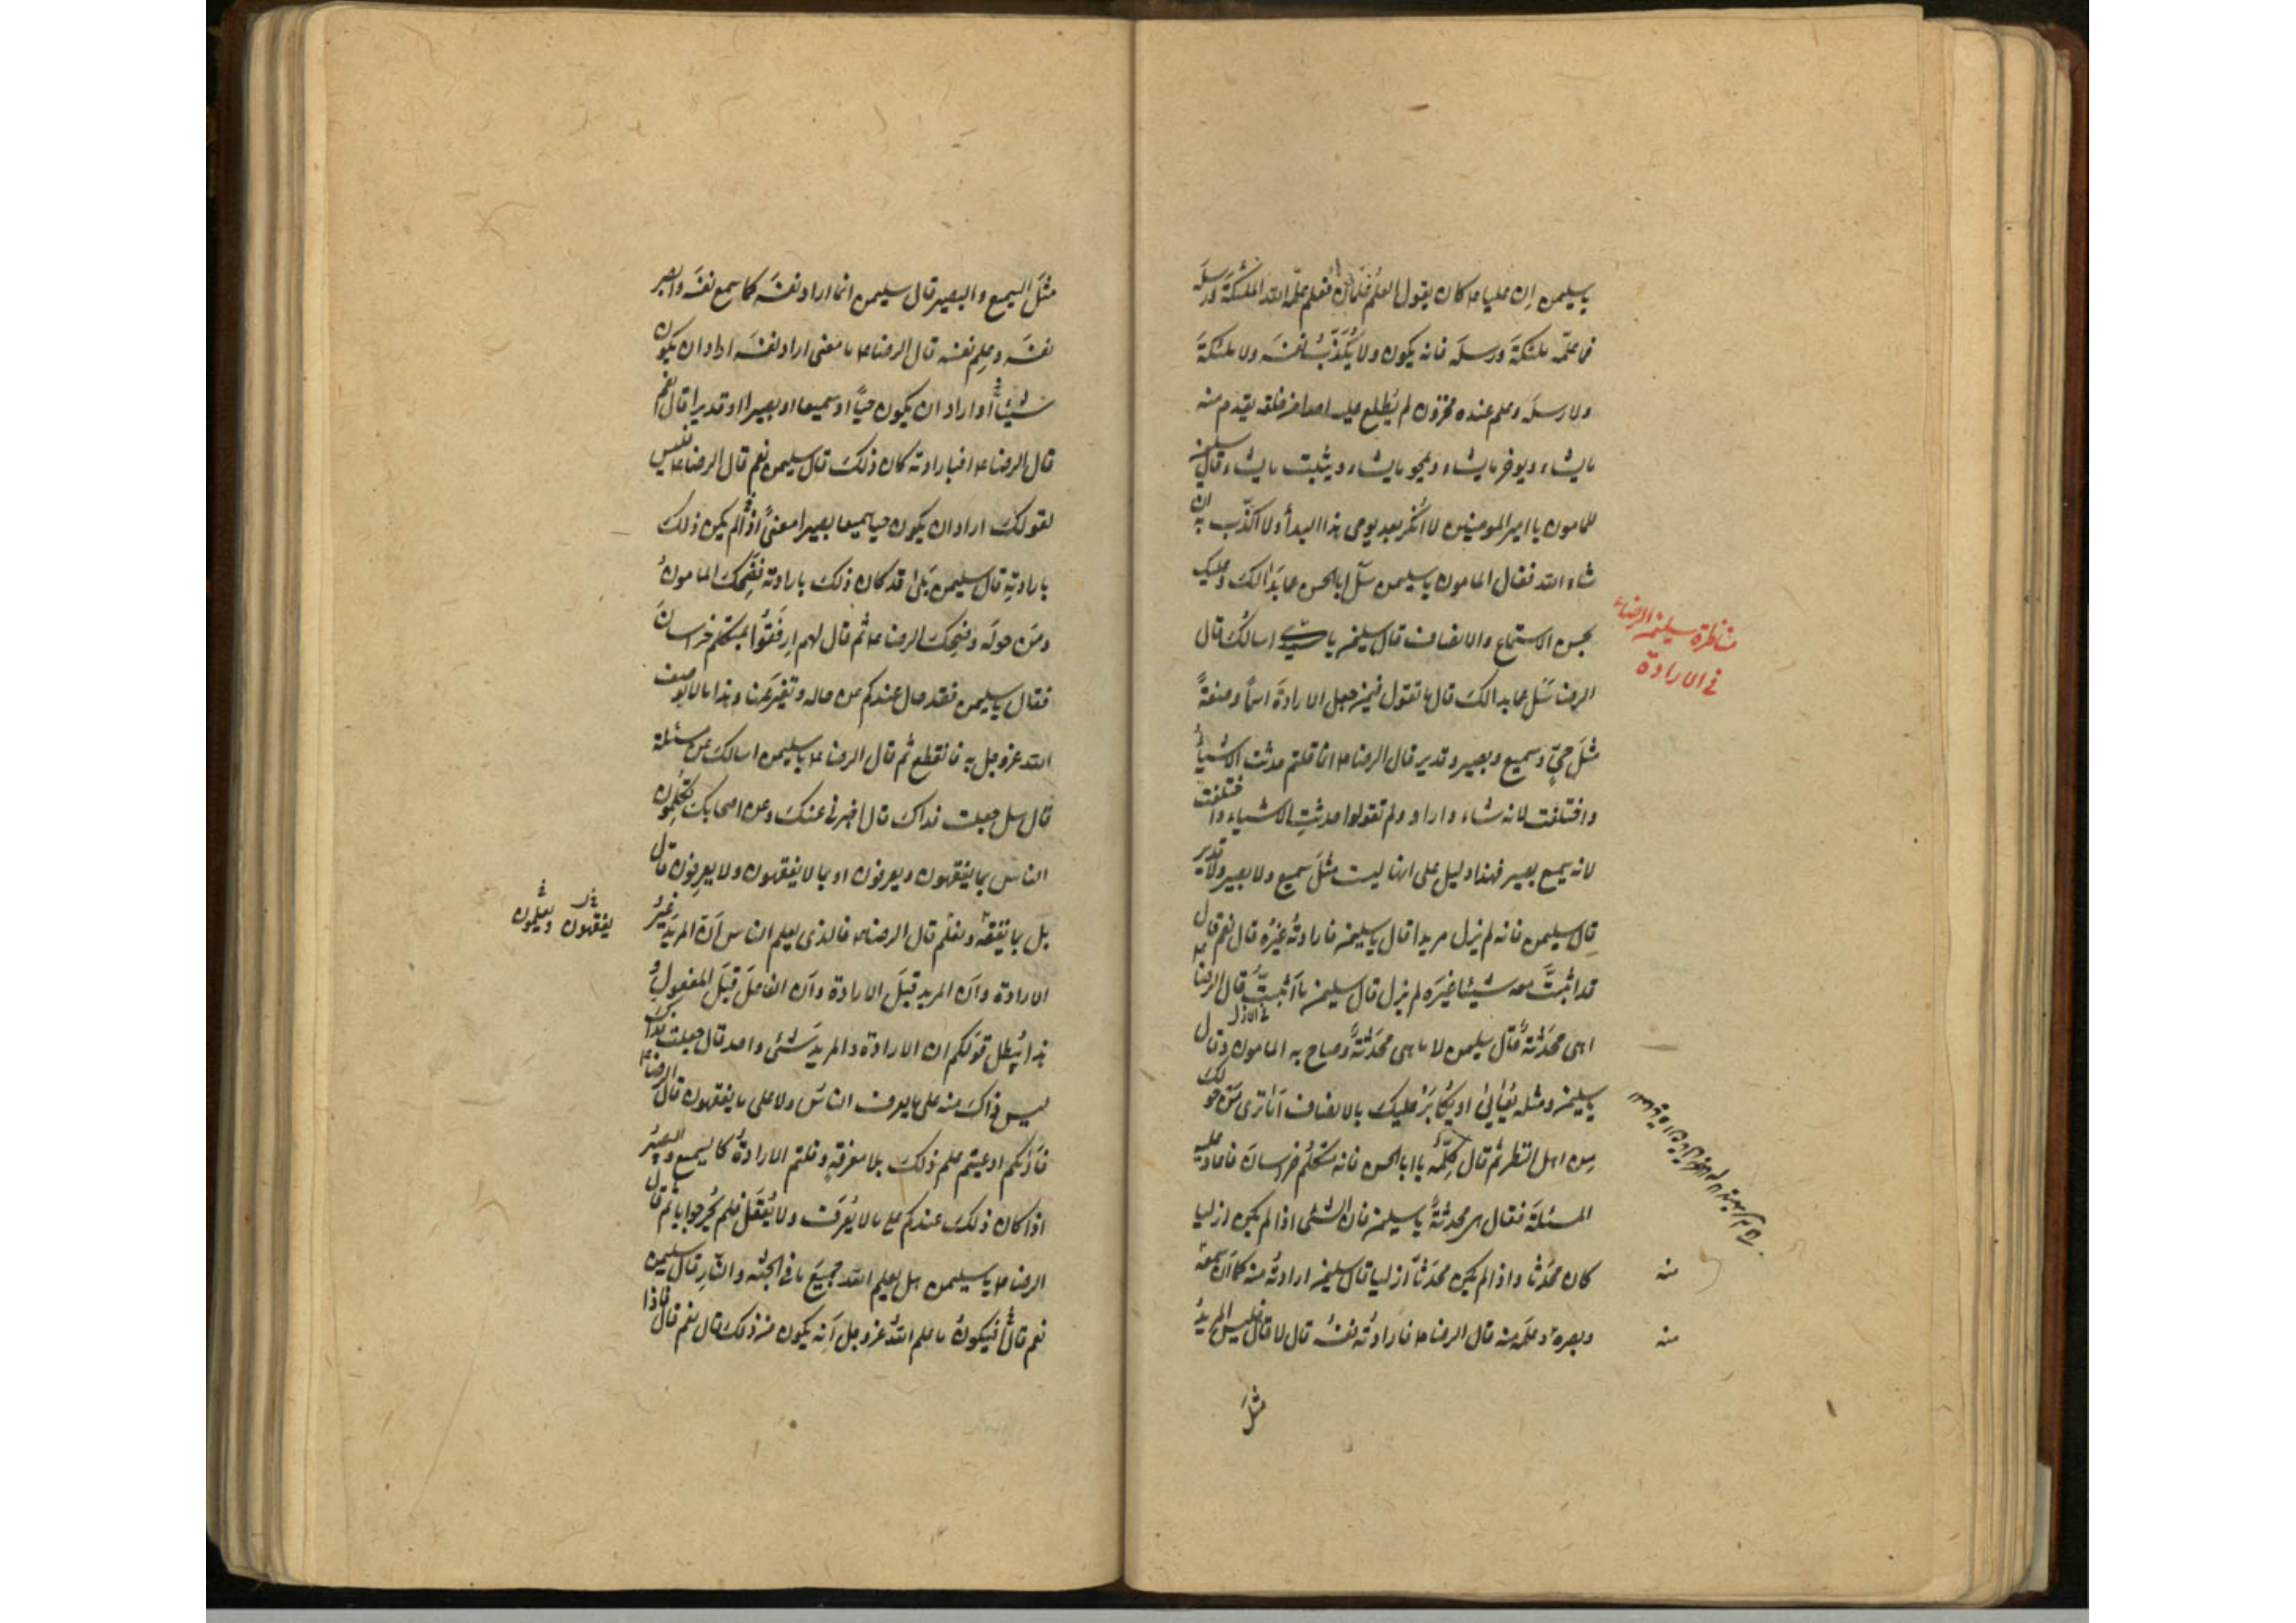 يا سليمن ان عليا ع كان يقول العلم علمان فعلم علّمه الله الملئكة ورسله
فما علّمه ملئكته ورسله فانه يكون ولا يُكَذِّبُ نفسَه ولا ملئكتَه
ولا رسلَه وعلم عنده مخزون لم يُطلِع عليه احدا من خلقه يقدم منه
ما يشاء ويوخر ما يشاء ويمحو ما يشاء ويثبت ما يشاء قال سليمن
للمامون يا امير المومنين لا اُنكر بعد يومى هذا البدأ ولا اكذّب به ان
شاء الله فقال المامون يا سليمن سَل ابا الحسن عما بدَا لكَ وعليك
بحسن الاستماع والانصاف قال سليمن يا سيدى اسالكَ قال
الرضا سَل عما بدا لكَ قال ما تقول فيمن جعل الارادةَ اسماً وصفةً
مثلَ حىٍّ وسميع وبصير وقدير قال الرضا ع انما قلتم حدثت الاشيأُ
واختلفت لانه شاء واراد ولم تقولوا حدثتِ الاشياء واختلفت
لانه سميع بصير فهذا دليل على انها ليست مثلَ سميع ولا بصير ولا قدير
قال سليمن فانه لم يزل مريدا قال يا سليمن فارادتُه غيرُه قال نعم قال
قد اثبتَّ معه شيئا غيرَه لم يزل قال سليمن ما اَثبتُّ قال الرضا ع
اهى محدَثةٌ قال سليمن لا ما هى محدَثةٌ وصاح به المامون وقال
يا سليمن ومثله يُعايٰا او يُكابَرُ عليك بالانصاف اَما ترى مَن حولك
مِن اهل النظر ثم قال كلِّمه يا ابا الحسن فانه متكلّم خراسان فاعاد عليه
المسئلةَ فقال هى محدثةٌ يا سليمن فان الشئى اذا لم يكن ازليا
كان محدَثا واذا لم يكن محدَثا كان ازليا قال سليمن ارادتُه منه كما اَن سمعَه
وبصره وعلمَه منه قال الرضا ع فارادتُه نفسُه قال لا قال فليس المريدُ
مثلَ
مناظرة سليمن الرضا ع
فى الارادة
فى الازل
منه
منه
مثلَ السميع والبصير قال سليمن انما اراد نفسَه كما سمع نفسَه وابصر
نفسَه وعلِم نفسَه قال الرضا ع ما معنى اراد نفسَه اراد ان يكون
شيئاً او اراد ان يكون حيّاً او سميعا او بصيرا او قديرا قال نعم
قال الرضا ع افبارادته كان ذلكَ قال سليمن نعم قال الرضا ع فليس
لقولكَ اراد ان يكون حيا سميعا بصيرا معنىً اذا لم يكن ذلك
بارادتِه قال سليمن بَلىٰ قد كان ذلكَ بارادته فضحكَ المامونُ
ومَن حولَه وضحِكَ الرضا ع ثم قال لهم اِرفَقُوا بمتكلم خراسانَ
فقال يا سليمن فقد حال عندكم عن حاله وتغيّرَ عنها وهذا ما لا يوصف
الله عزوجل به فانقطع ثم قال الرضا ع يا سليمن اسالكَ عن مسئلة
قال سل جعلت فداكَ قال اخبرنى عنكَ وعن اصحابكَ تكلّمون
الناسَ بما يفقهون ويعرفون او بما لا يفقهون ولا يعرِفون قال
بل بما يفقه ونعلم قال الرضا ع فالذى يعلم الناس اَن المريدَ غيرُ
الارادة واَن المريد قبلَ الارادة واَن الفاعلَ قبلَ المفعولِ و
هذا يُبطل قولَكم ان الارادة والمريدَ شئى واحد قال جعلت فداكَ
ليس ذاكَ منه على ما يعرف الناسُ ولا على ما يفقهون قال الرضا ع
فاَراكم ادعيتم علم ذلكَ بلا معرفةٍ وقلتم الارادةُ كالسميع والبصيرُ
اذا كان ذلكَ عندكم على ما لا يُعرَف ولا يُعقَل فلم يُحِر جوابا ثم قال
الرضا ع يا سليمن هل يعلم اللهُ جميعَ ما فى الجنّه والنّار قال سليمن
نعم قال اَفيكونُ ما علم اللهُ عزوجل اَنه يكون من ذلكَ قال نعم قال فاذا
يفقهون ويعلمون